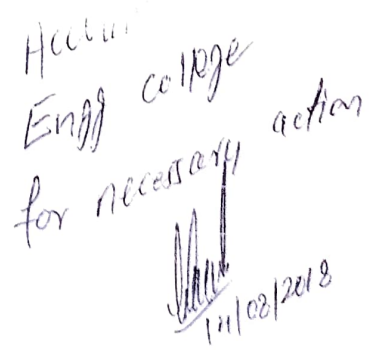 Engg college
for necessary action
14/08/2018